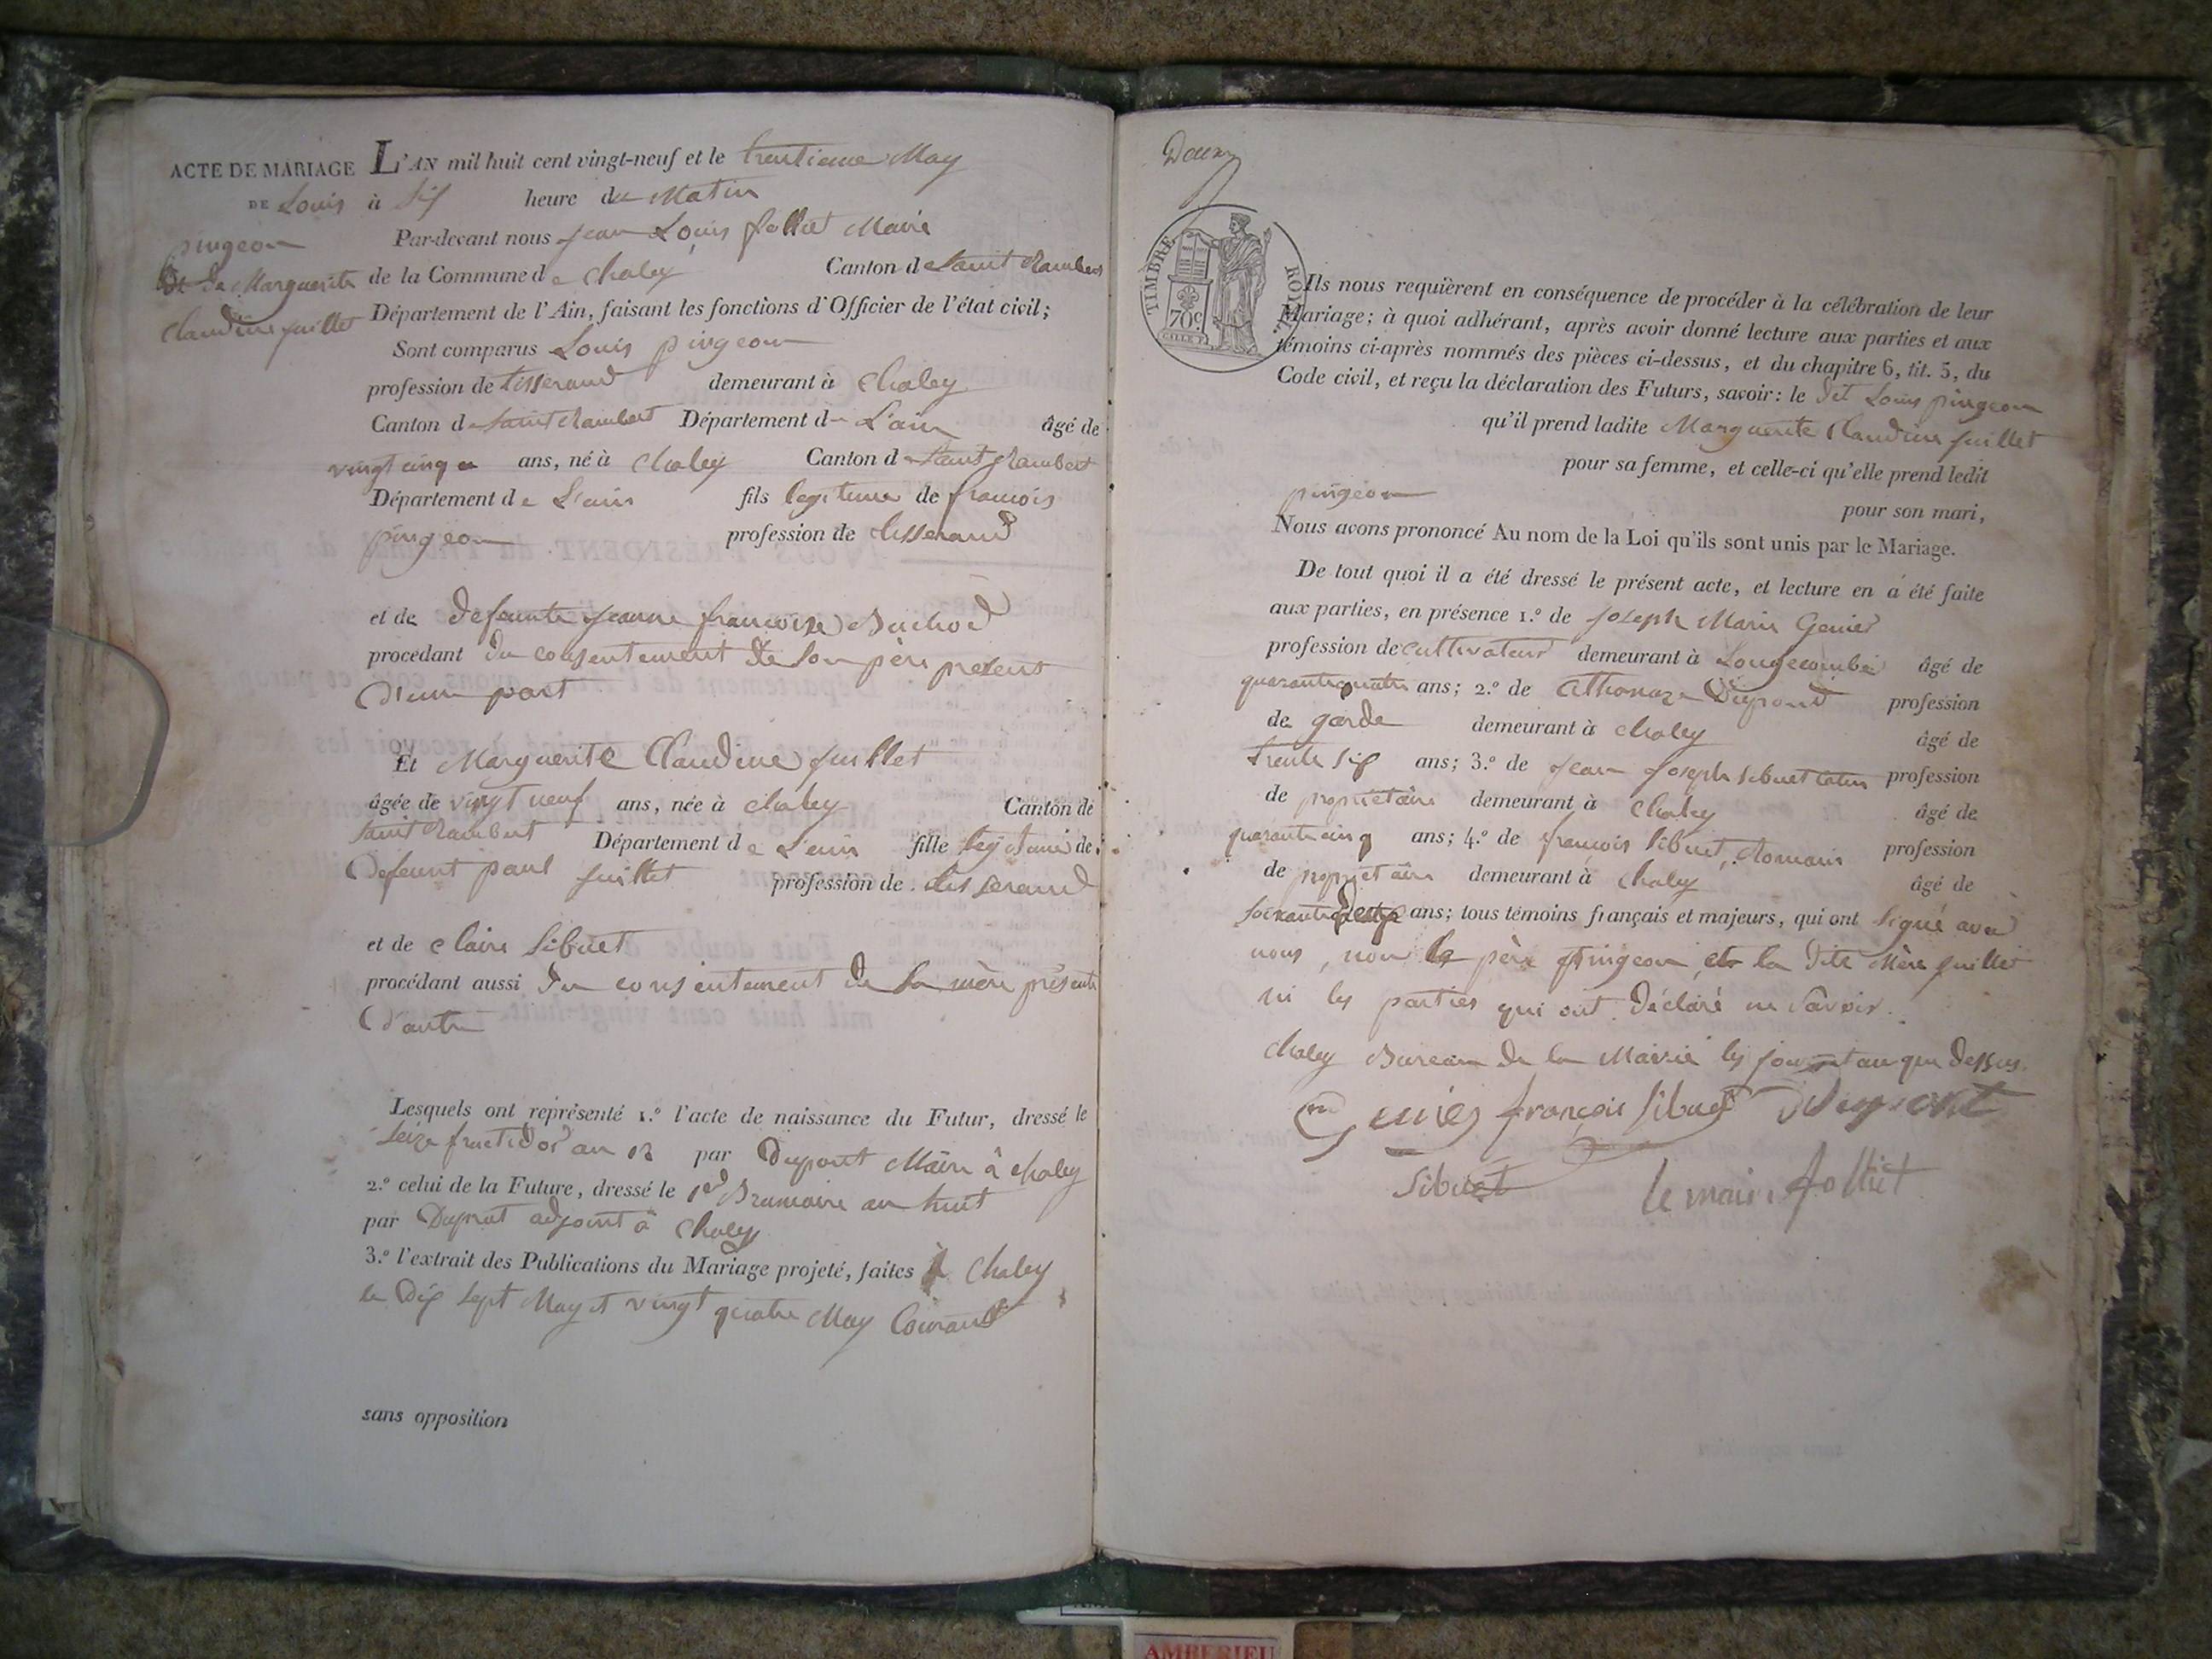 ACTE DE MARIAGE
DE Louis
pingeon
Et De Marguerite
Claudine juillet
L'AN mil huit cent vingt-neuf et le trentieme May
à six heure du Matin
Par-devant nous jean Louis folliet Maire
de la Commune de Chaley Canton de Saint Rambert
Département de l'Ain, faisant les fonctions d'Officier de l'état civil;
Sont comparus Louis pingeon
profession de tisserand demeurant à Chaley
Canton de Saint Rambert Département de L'ain âgé de
vingt cinq ans, né à Chaley Canton de Saint Rambert
Département de L'ain fils legitime de francois
pingeon profession de tisserand
et de defeunte jeanne francoise Buchod
procédant du consentement De son père présent
D'une part
Et Marguerite Claudine juillet
âgée de vingt neuf ans, née à Chaley Canton de
Saint Rambert Département de L'ain fille legitime de
Defeunt paul juillet profession de tisserand
et de claire Sibuet
procédant aussi du consentement de Sa mère présente
D'autre
Lesquels ont représenté 1.º l'acte de naissance du Futur, dressé le
Seize fructidor an 12 par Dupont Maire à Chaley
2.º celui de la Future, dressé le 1er Brumaire an huit
par Duprat adjoint à Chaley
3.º l'extrait des Publications du Mariage projeté, faites à Chaley
le Dix Sept May et vingt quatre May Courant
sans opposition
Deux
TIMBRE ROYAL
70c
Ils nous requièrent en conséquence de procéder à la célébration de leur
Mariage; à quoi adhérant, après avoir donné lecture aux parties et aux
témoins ci-après nommés des pièces ci-dessus, et du chapitre 6, tit. 5, du
Code civil, et reçu la déclaration des Futurs, savoir: le dit Louis pingeon
qu'il prend ladite Marguerite Claudine juillet
pour sa femme, et celle-ci qu'elle prend ledit
pingeon pour son mari,
Nous avons prononcé Au nom de la Loi qu'ils sont unis par le Mariage.
De tout quoi il a été dressé le présent acte, et lecture en a été faite
aux parties, en présence 1.º de joseph Marie Genier
profession de cultivateur demeurant à Longecombe âgé de
quarante quatre ans; 2.º de Athanaze Dupond profession
de garde demeurant à Chaley âgé de
trente six ans; 3.º de jean joseph Sibuet profession
de propriétaire demeurant à Chaley âgé de
quarante cinq ans; 4.º de francois Sibuet, Romain profession
de propriétaire demeurant à Chaley âgé de
Soixante ans; tous témoins français et majeurs, qui ont Signé avec
nous, non le père pingeon, et la dite Mère juillet
ni les parties qui ont Déclaré ne Savoir.
Chaley Bureau de la Mairie les jour et an que Dessus.
Genier françois Sibuet Dupont
Sibuet le maire folliet
AMBERIEU